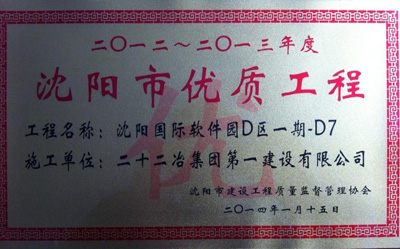 二〇一二～二〇一三年度
沈阳市优质工程
优
工程名称：沈阳国际软件园D区一期-D7
施工单位：二十二冶集团第一建设有限公司
沈阳市建设工程质量监督管理协会
二〇一四年一月十五日